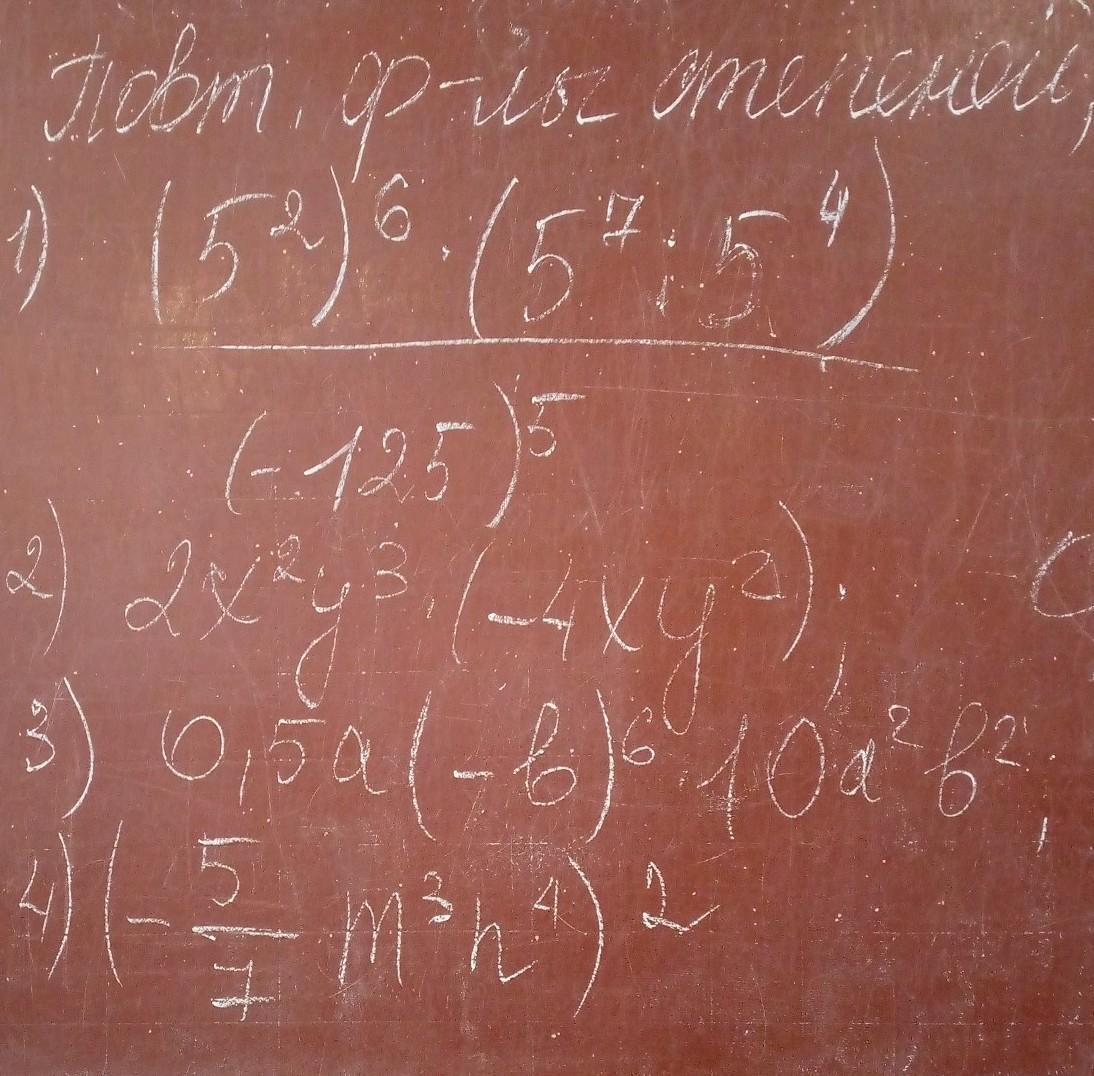 Повт. ф-лы степеней,
1) (5²)⁶ · (5⁷ : 5⁴)
(-125)⁵
2) 2x²y³ · (-4xy²);
3) 0,5a(-b)⁶ 10a²b²,
4) (-5/7 m³n⁴)²